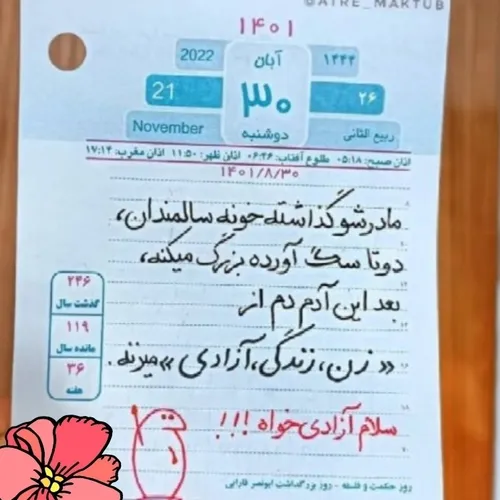 @ATRE_MAKTUB
۱۴۰۱
2022 آبان ۱۴۴۴
21 ۳۰ ۲۶
November دوشنبه ربیع الثانی
اذان صبح: ۰۵:۱۸ طلوع آفتاب: ۰۶:۴۶ اذان ظهر: ۱۱:۵۰ اذان مغرب: ۱۷:۱۴
۱۴۰۱/۸/۳۰
مادرشو گذاشته خونه سالمندان،
دوتا سگ آورده بزرگ میکنه،
بعد این آدم دم از
«زن، زندگی، آزادی» میزنه.
سلام آزادی خواه!!!
۲۴۶
گذشت سال
۱۱۹
مانده سال
۳۶
هفته
روز حکمت و فلسفه - روز بزرگداشت ابونصر فارابی